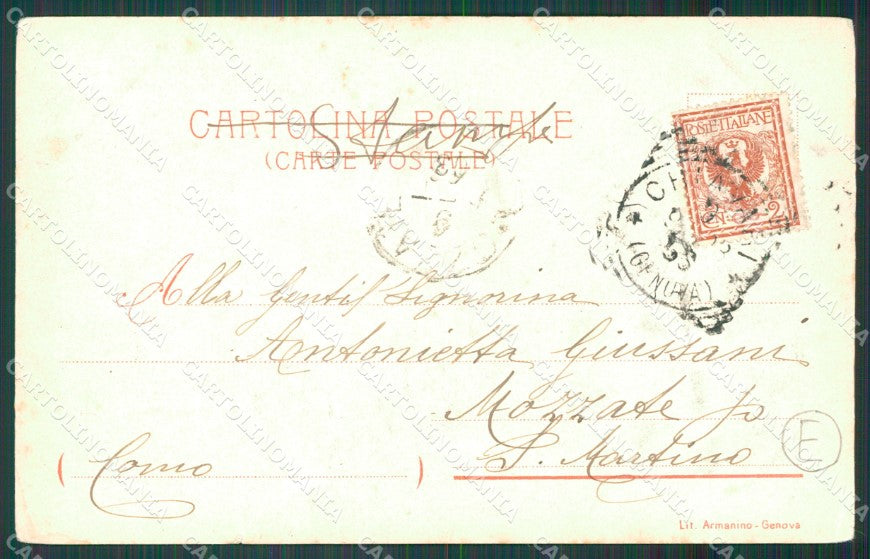 CARTOLINA POSTALE
Stampe
(CARTE POSTALE)
POSTE ITALIANE
CEN. 2
CHIAVARI
(GENOVA)
Alla Gentil Signorina
Antonietta Giussani
Mozzate po
S. Martino
(Como)
E
Lit. Armanino - Genova
CARTOLINOMANIA